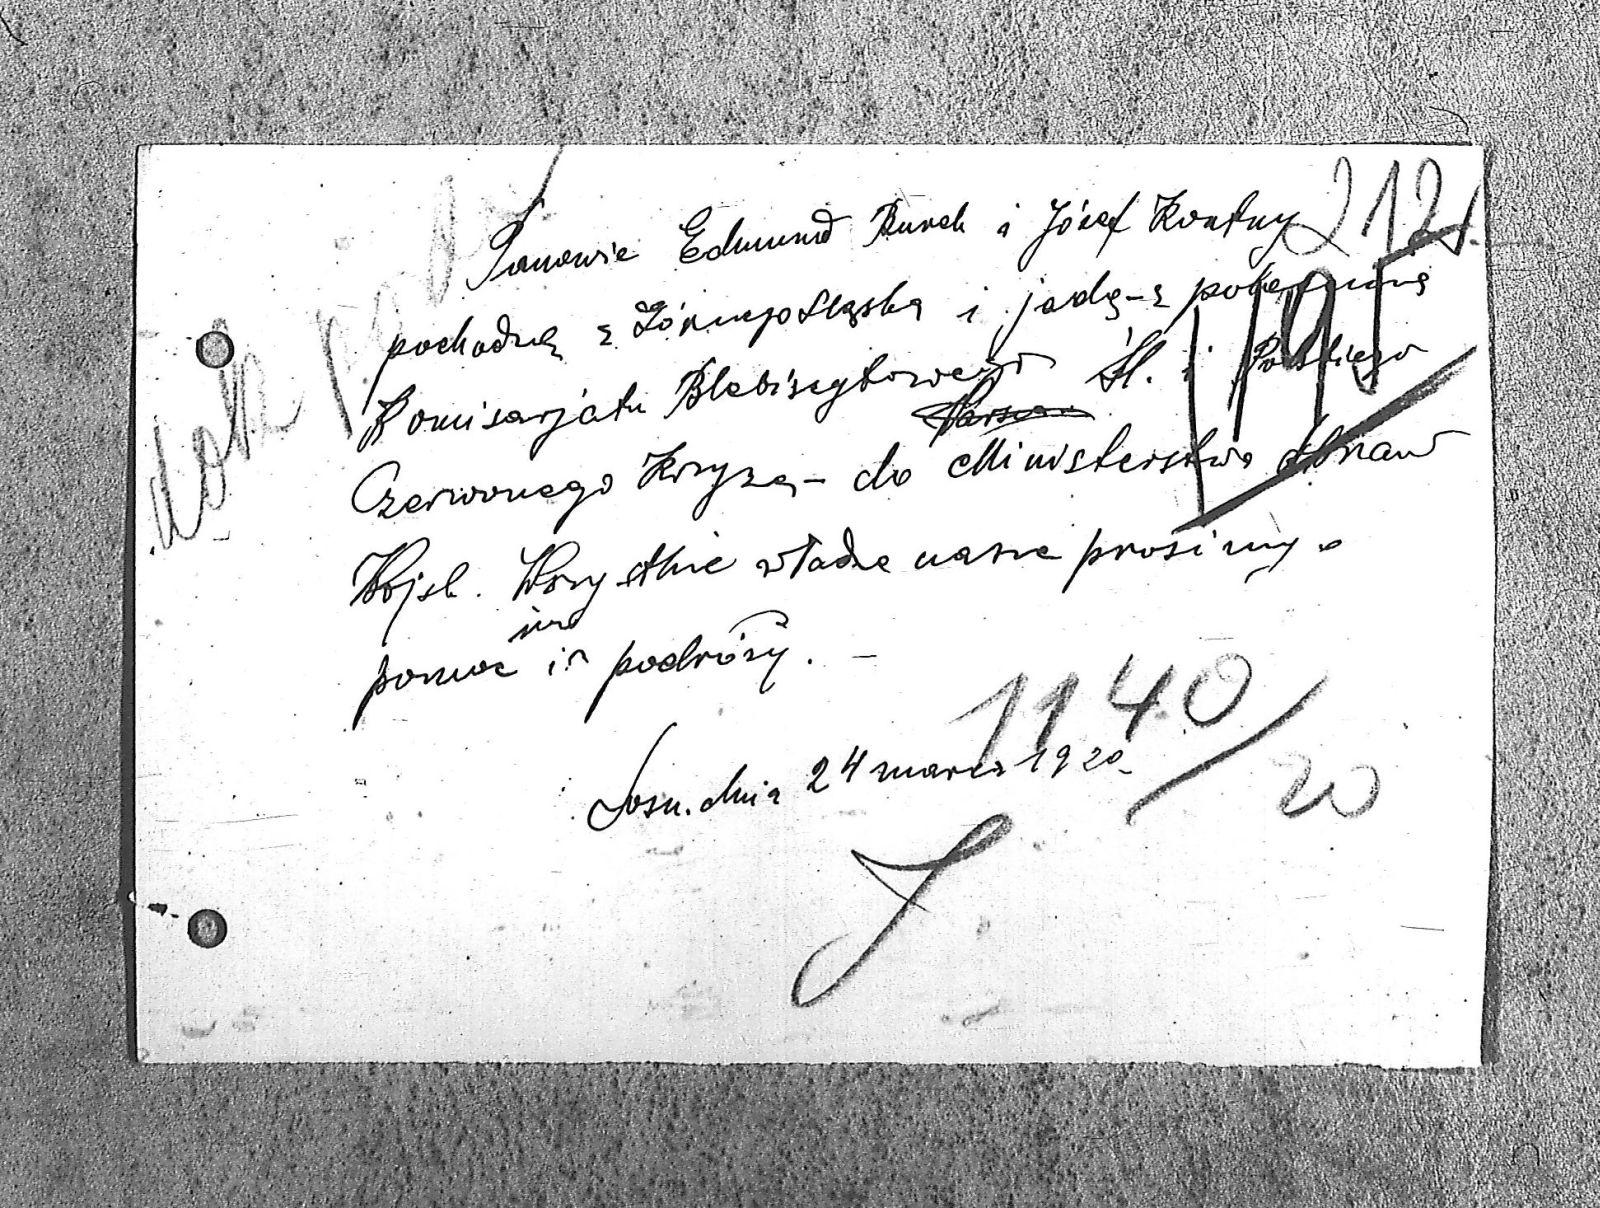 212.
Panowie Edmund Burek i Józef Kontny
191
pochodzą z Górnego Śląska i jadą z polecenia
Komisarjatu Plebiscytowego Śl. i Polskiego
Czerwonego Krzyża – do Ministerstwa Spraw
Wojsk. Wszystkie władze nasze prosimy o
pomoc im podróży. –
Sosn. dnia 24 marca 1920
1140/20